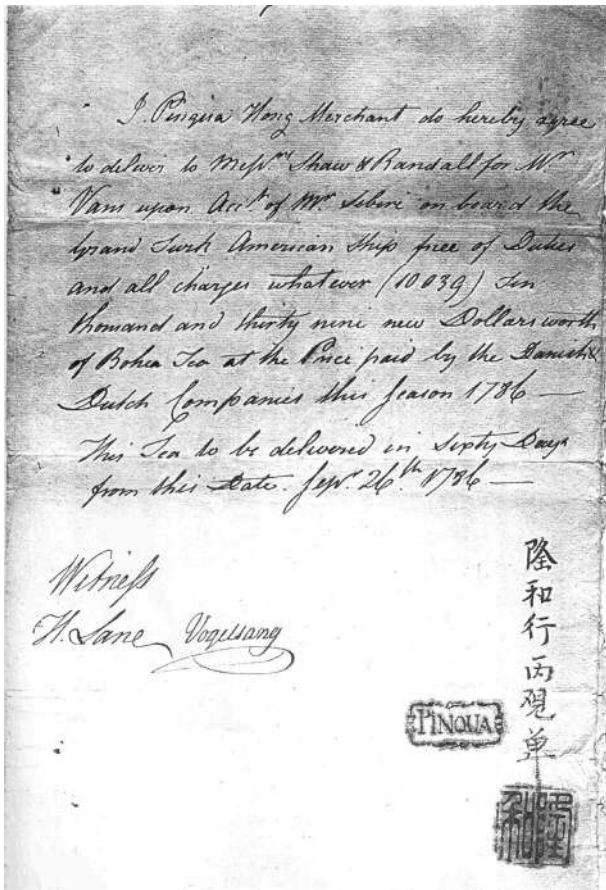 I. Pinqua Hong Merchant do hereby agree
to deliver to Messrs Shaw & Randall for Mr
Vans upon Acct of Mr Sebire on board the
Grand Turk American Ship free of Duties
and all charges whatever (10039) Ten
thousand and thirty nine new Dollars worth
of Bohea Tea at the Price paid by the Danish &
Dutch Companies this Season 1786 —
This Tea to be delivered in Sixty Days
from this Date. Sepr 26th 1786 —
Witness
H. Lane Vogelsang
隆和行丙觀单
PINQUA
隆和